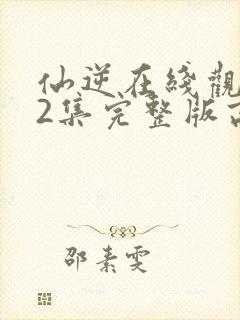 仙逆在綫觀
2集完整版高
邵素雯